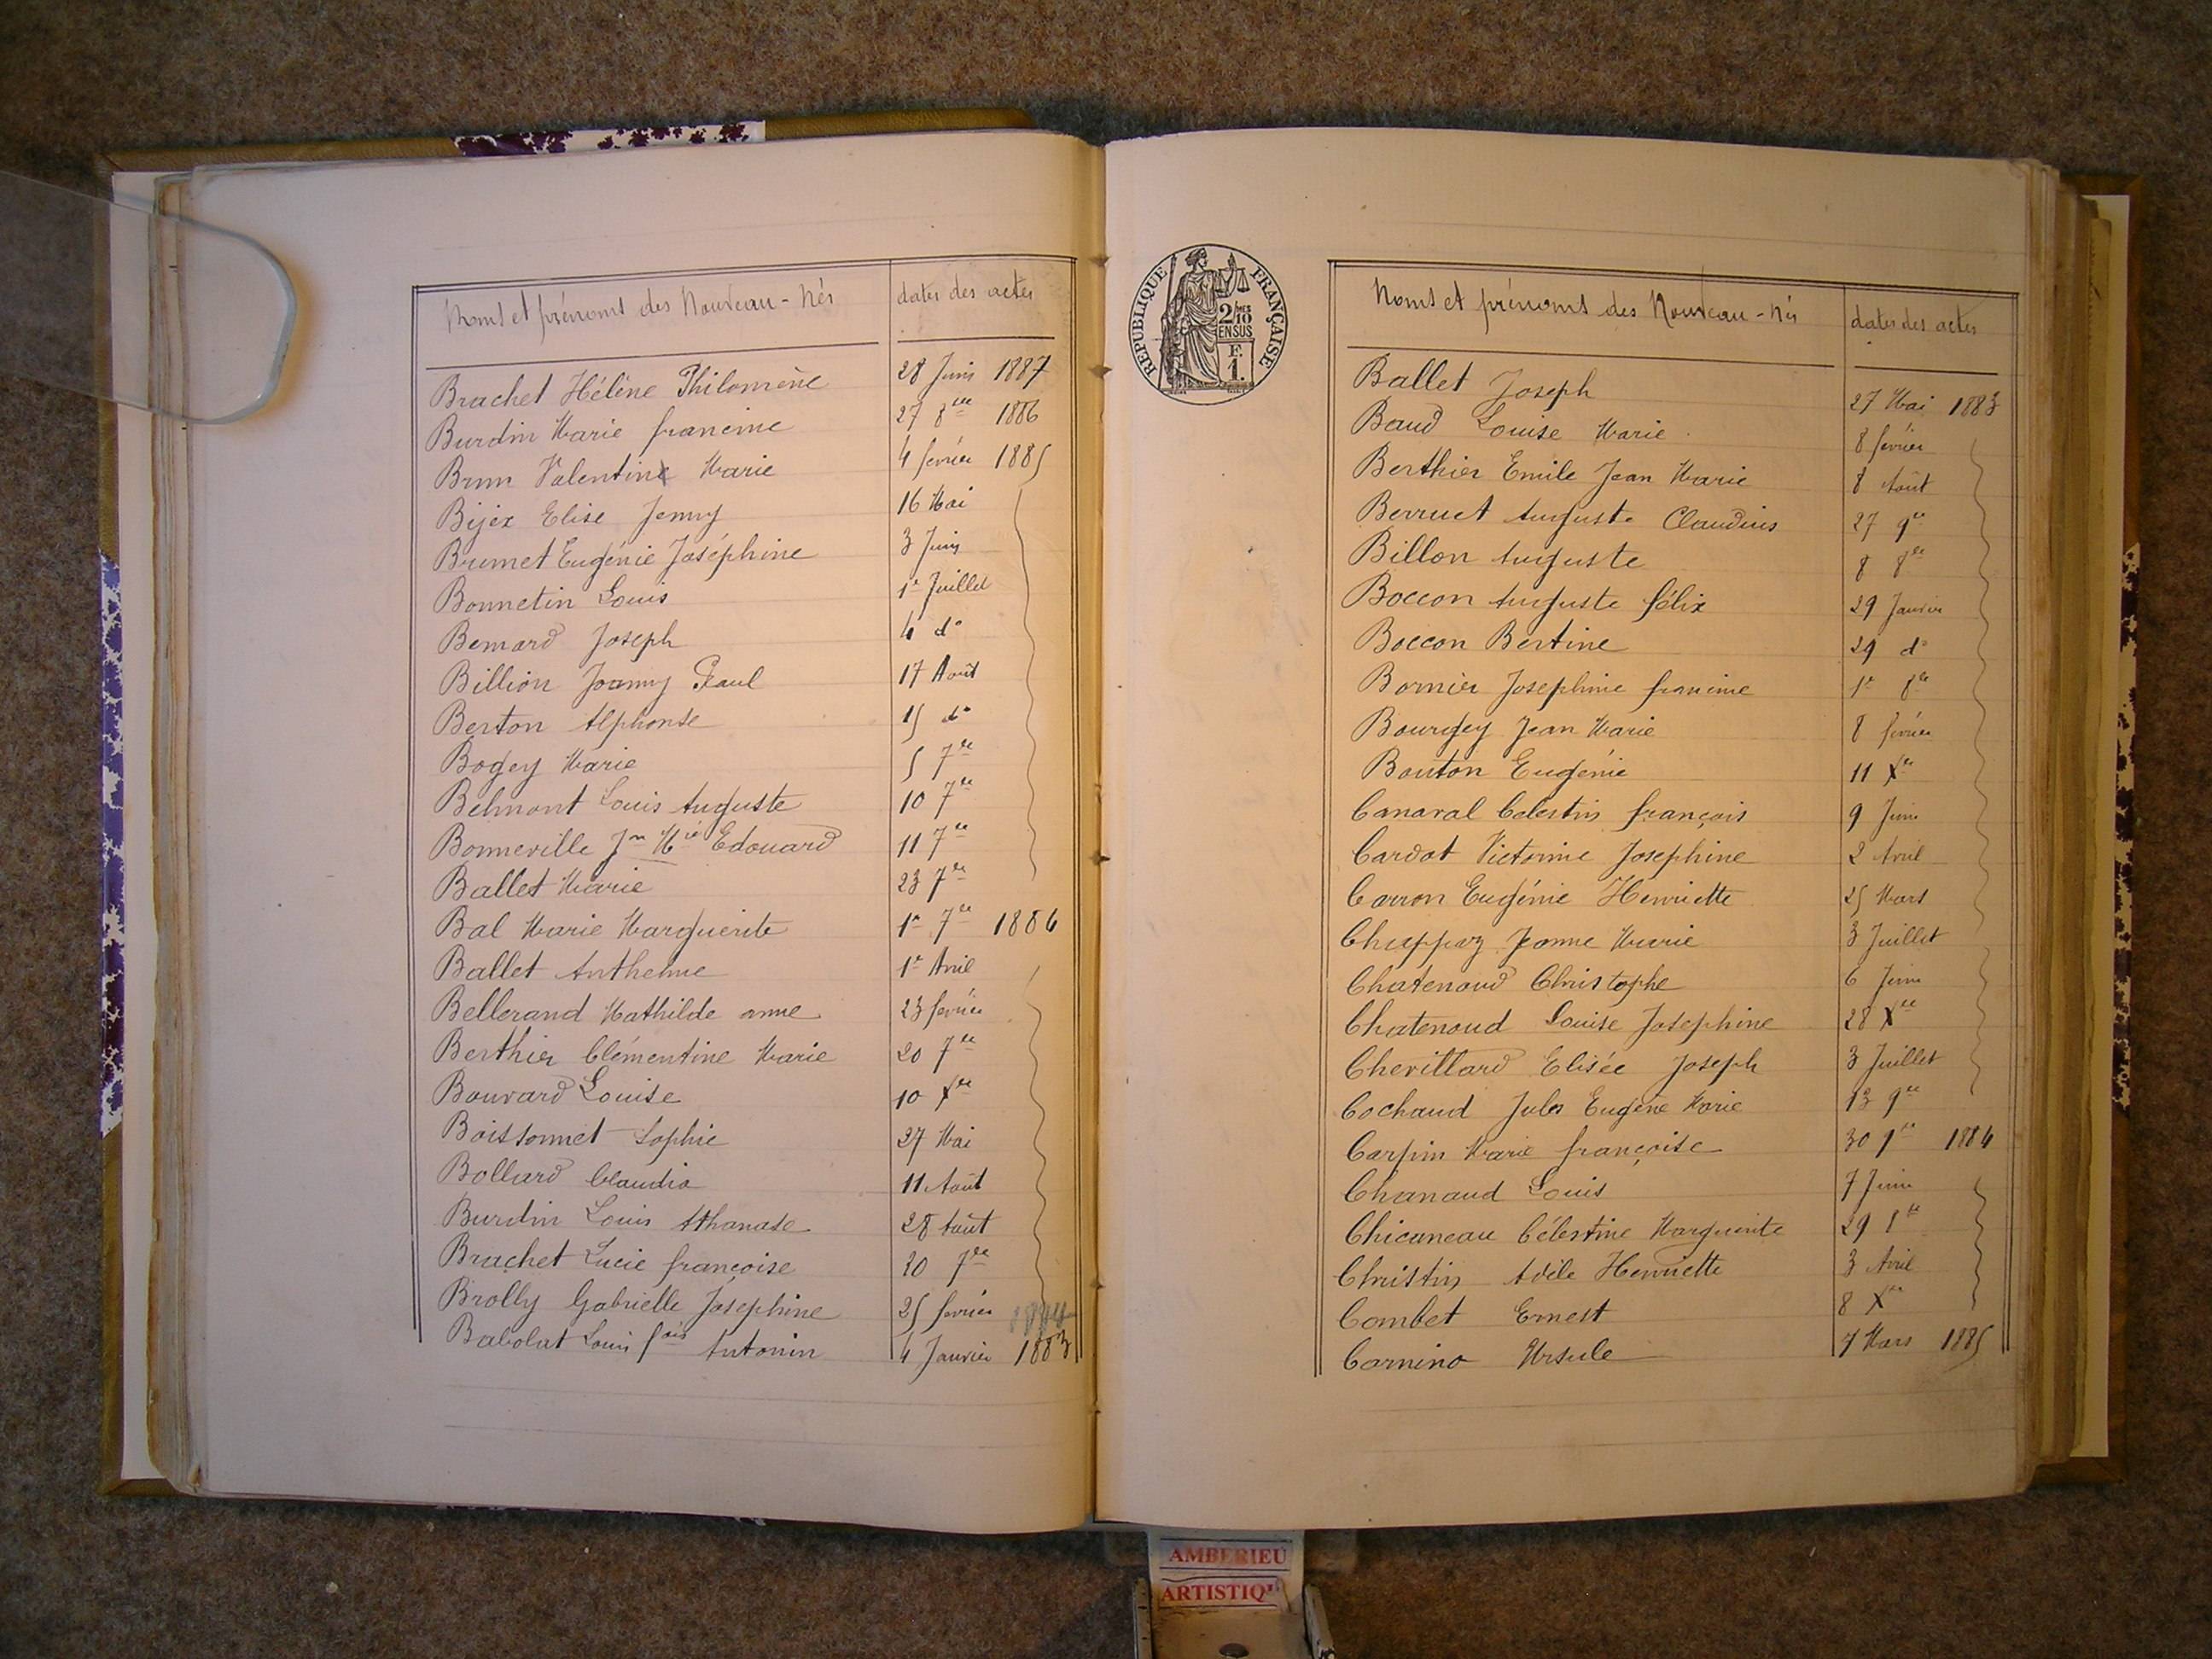 Noms et prénoms des Nouveau-nés dates des actes
Brachet Hélène Philomène 28 Juin 1887
Burdin Marie francine 27 8bre 1886
Brun Valentine Marie 4 février 1885
Bijex Elise Jenny 16 Mai
Brumet Eugénie Joséphine 3 Juin
Bonnetin Louis 1er Juillet
Bernard Joseph 4 do
Billion Joanny Paul 17 Août
Berton Alphonse 15 do
Bogey Marie 5 7bre
Belmont Louis Auguste 10 7bre
Bonneville Jn Mie Edouard 11 7bre
Ballet Marie 23 7bre
Bal Marie Marguerite 1er 7bre 1884
Ballet Anthelme 1er Avril
Bellerand Mathilde anne 23 février
Berthier Clémentine Marie 20 7bre
Bouvard Louise 10 Xbre
Boissonnet Sophie 27 Mai
Bollard Claudia 11 Août
Burdin Louis Athanase 28 Août
Brachet Lucie françoise 20 7bre
Brolly Gabrielle Joséphine 25 février 1884
Babolat Louis fois Antonin 4 Janvier 1883
RÉPUBLIQUE FRANÇAISE
2/10 EN SUS
F. 1.
Noms et prénoms des Nouveau-nés dates des actes
Ballet Joseph 27 Mai 1883
Baud Louise Marie 8 février
Berthier Emile Jean Marie 8 Août
Berruet Auguste Claudius 27 9bre
Billon Auguste 8 8bre
Boccon Auguste félix 29 Janvier
Boccon Bertine 29 do
Bornier Josephine francine 1er 8bre
Bourgey Jean Marie 8 février
Bouton Eugénie 11 Xbre
Canaral Celestin françois 9 Juin
Cardot Victorine Josephine 2 Avril
Carron Eugénie Henriette 25 Mars
Chappaz Jeanne Marie 3 Juillet
Chatenoud Christophe 6 Juin
Chatenoud Louise Josephine 28 Xbre
Chevillard Elisée Joseph 3 Juillet
Cochaud Jules Eugène Marie 13 9bre
Carpin Marie françoise 30 1884
Chanaud Louis 7 Juin
Chicaneau Célestine Marguerite 29 8bre
Christin Adèle Henriette 3 Avril
Combet Ernest 8 Xbre
Carnino Ursule 7 Mars 1885
AMBERIEU
ARTISTIQU